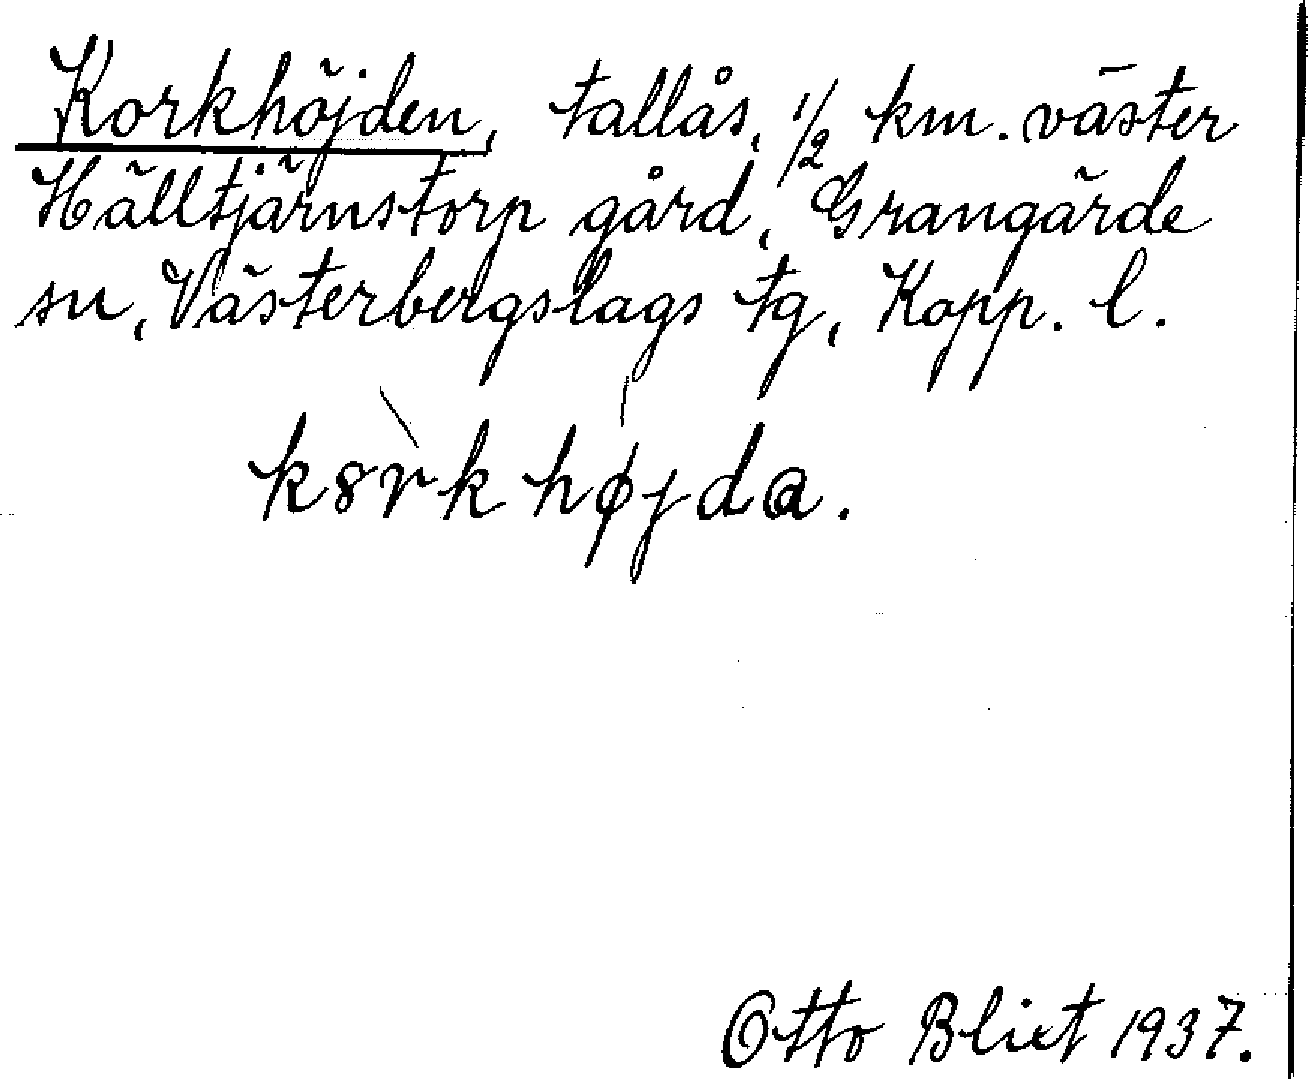 Korkhöjden, tallås, 1/2 km. väster
Hälltjärnstorp gård, Grangärde
sn, Västerbergslags tg, Kopp. l.
k8rk højda.
Otto Blixt 1937.